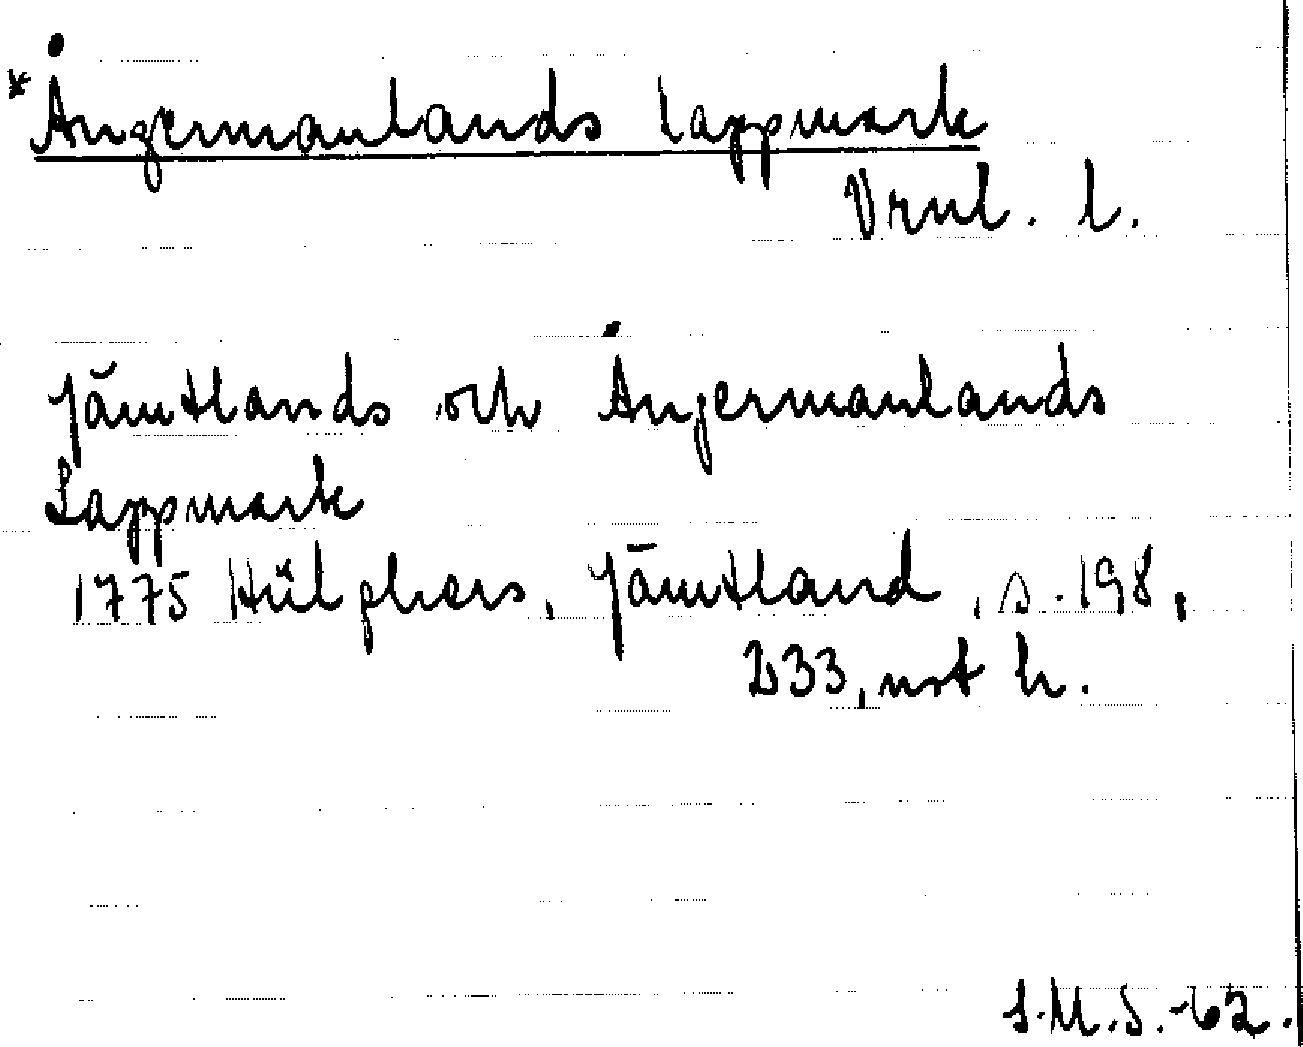 *Ångermanlands lappmark
Vrnl. l.
Jämtlands och Ångermanlands
Lappmark
1775 Hülphers, Jämtland, s. 198,
233, not h.
S.M.S. -62.